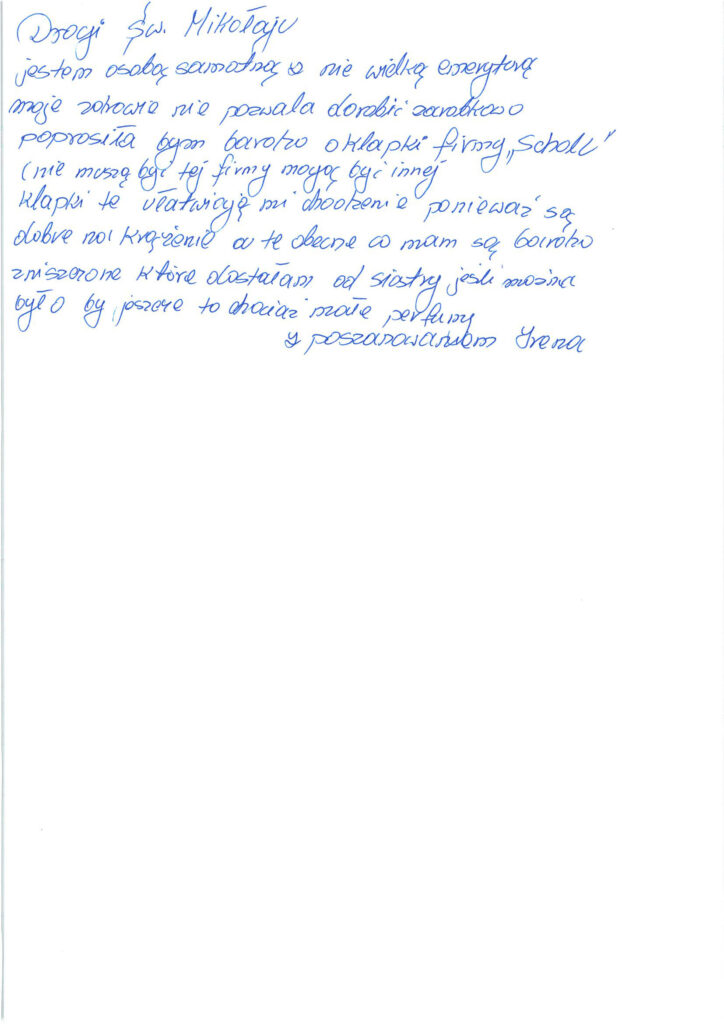 Drogi Św. Mikołaju
jestem osobą samotną z nie wielką emeryturą
moje zdrowie nie pozwala dorobić zarobkowo
poprosiła bym bardzo o klapki firmy „Scholl"
(nie muszą być tej firmy mogą być innej
klapki te ułatwiają mi chodzenie ponieważ są
dobre na krążenie a te obecne co mam są bardzo
zniszczone które dostałam od siostry jeśli można
było by jeszcze to chociaż małe perfumy
z poszanowaniem Irena